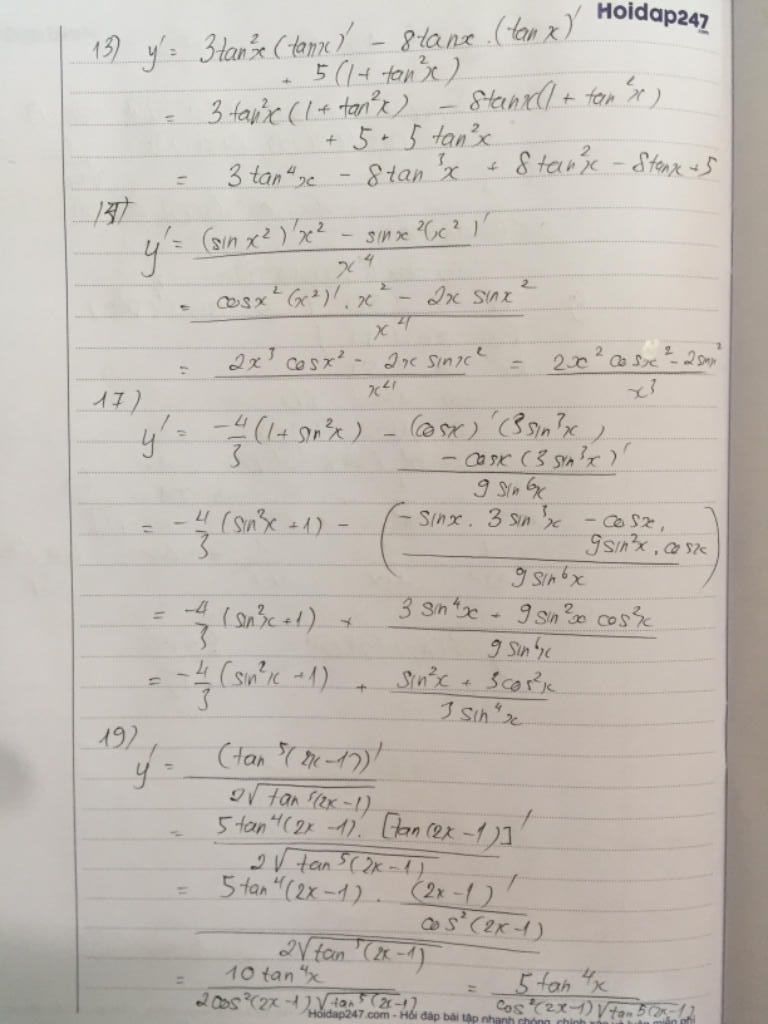 Hoidap247
.com
13) y' = 3tan²x (tanx)' - 8tanx . (tan x)'
+ 5(1 + tan²x)
= 3tan²x (1 + tan²x) - 8tanx(1 + tan²x)
+ 5 + 5 tan²x
= 3tan⁴x - 8tan³x + 8tan²x - 8tanx + 5
y' = (sin x²)'x² - sinx²(x²)'
x⁴
= cosx²(x²)' . x² - 2x sinx²
x⁴
= 2x³ cosx² - 2x sinx² = 2x² cosx² - 2sinx²
x⁴ x³
17)
y' = -4/3 (1 + sin²x) - (cosx)' (3sin³x)
- cosx (3 sin³x)'
9 sin⁶x
= -4/3 (sin²x + 1) - (-sinx . 3 sin³x - cosx .
9sin²x . cosx)
9 sin⁶x
= -4/3 (sin²x + 1) + 3 sin⁴x + 9 sin²x cos²x
9 sin⁶x
= -4/3 (sin²x + 1) + sin²x + 3cos²x
3 sin⁴x
19)
y' = (tan⁵(2x-1))'
2√tan⁵(2x-1)
= 5tan⁴(2x-1) . [tan(2x-1)]'
2√tan⁵(2x-1)
= 5tan⁴(2x-1) . (2x-1)'
cos²(2x-1)
2√tan⁵(2x-1)
= 10tan⁴x = 5tan⁴x
2cos²(2x-1)√tan⁵(2x-1) cos²(2x-1)√tan⁵(2x-1)
Hoidap247.com - Hỏi đáp bài tập nhanh chóng, chính xác